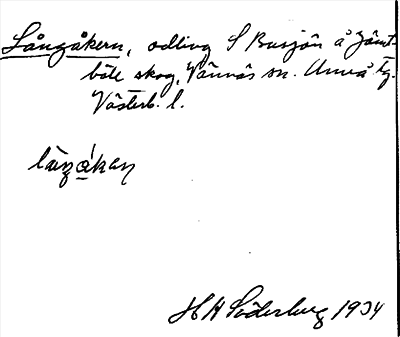 Långåkern, odling S Busjön å Jämt-
böle skog, Vännäs sn. Umeå tg.
Västerb. l.
làŋgákaŋ
H H Söderberg 1934